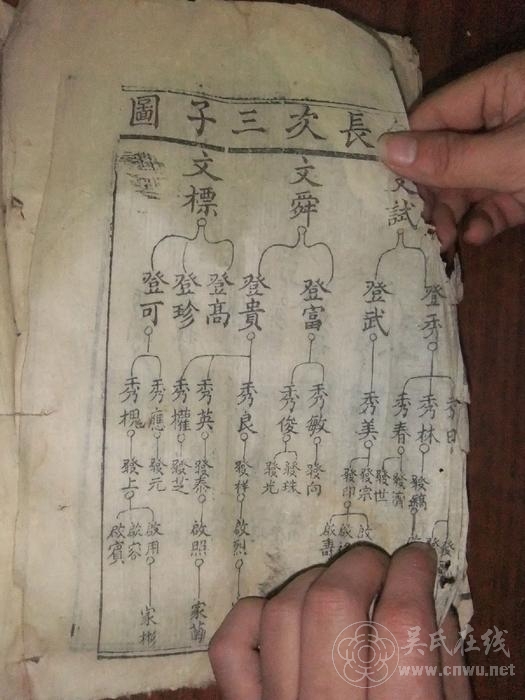 長次三子圖
試
文舜
文標
登武
登富
登貴
登高
登珍
登可
秀林
秀春
秀美
秀敏
秀俊
秀良
秀英
秀權
秀應
秀槐
發濟
發世
發宗
發印
發向
發珠
發光
發祥
發泰
發芝
發元
發上
啟壽
啟烈
啟照
啟用
啟容
啟賓
家彬
吴氏在线
www.cnwu.net